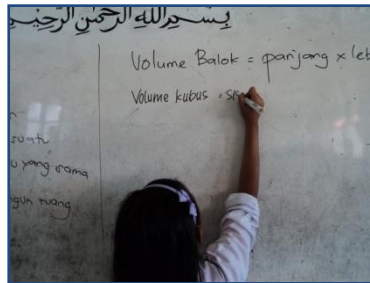 بسم الله الرحمن الرحيم
Volume Balok = panjang x leb
Volume kubus = sis
suatu
yang sama
ruang